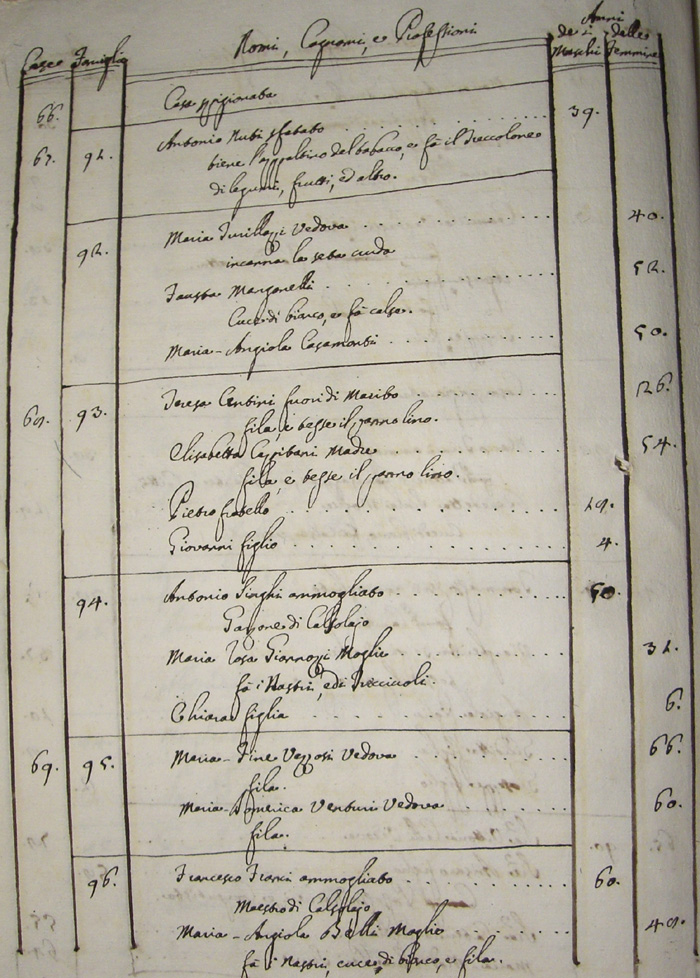 Anni
Case Famiglie Nomi, Cognomi, e Professioni dei delle
Maschi Femmine
66. Casa spigionata
67. 91. Antonio Nuti sfatato 39.
tiene l'appaltino del tabacco, e fà il Treccolone
di legumi, frutti, ed altro.
92. Maria Vedova 40.
incanna la seta cruda
Fausta Manganelli 52.
Cuce di bianco, e fà calze.
Maria-Angiola Casamonti 50.
93. Teresa Centini fuori di Marito 26.
fila, e tesse il panno lino.
Elisabetta Madre 54.
fila, e tesse il panno lino.
Pietro fratello 19.
Giovanni figlio 4.
94. Antonio ammogliato 50.
Garzone di Calzolajo
Maria Rosa Giannozzi Moglie 31.
fà i Nastri, ed i Trecciuoli.
Chiara figlia 6.
69. 95. Maria- Vezzosi Vedova 66.
fila.
Maria-Domenica Venturi Vedova 60.
fila.
96. Francesco Franci ammogliato 60.
Maestro di Calzolajo
Maria-Angiola Belli Moglie 49.
fà i Nastri, cuce di bianco, e fila.